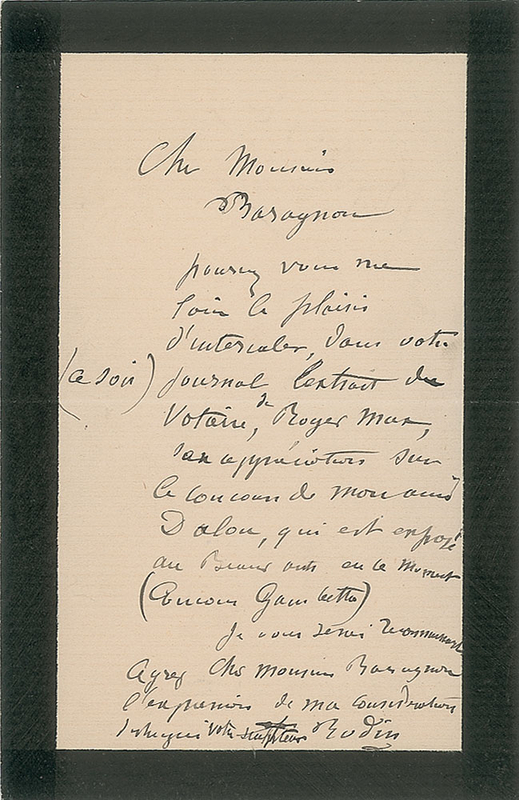 Cher Monsieur
Baragnon
pourez vous me
faire le plaisir
d'intercaler, dans votre
(ce soir) journal l'extrait du
Voltaire, de Roger Marx,
son appréciation sur
le concours de mon ami
Dalou, qui est exposé
au Beaux arts en ce moment
(Concours Gambetta)
Je vous serai reconnaissant
Agreez Cher monsieur Baragnon
l'expression de ma considération
distinguée votre sculpteur Rodin